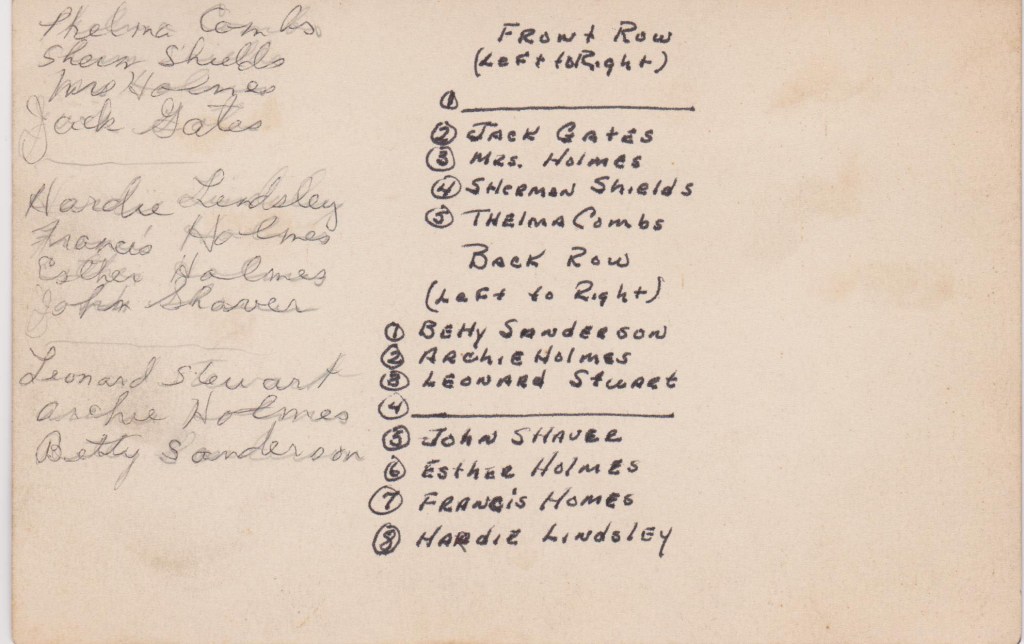 Thelma Combs
Sherm Shields
Mrs Holmes
Jack Gates
Hardie Lindsley
Francis Holmes
Esther Holmes
John Shaver
Leonard Stewart
Archie Holmes
Betty Sanderson
Front Row
(Left to Right)
①
② Jack Gates
③ Mrs. Holmes
④ Sherman Shields
⑤ Thelma Combs
Back Row
(Left to Right)
① Betty Sanderson
② Archie Holmes
③ Leonard Stwart
④
⑤ John Shaver
⑥ Esther Holmes
⑦ Francis Homes
⑧ Hardie Lindsley